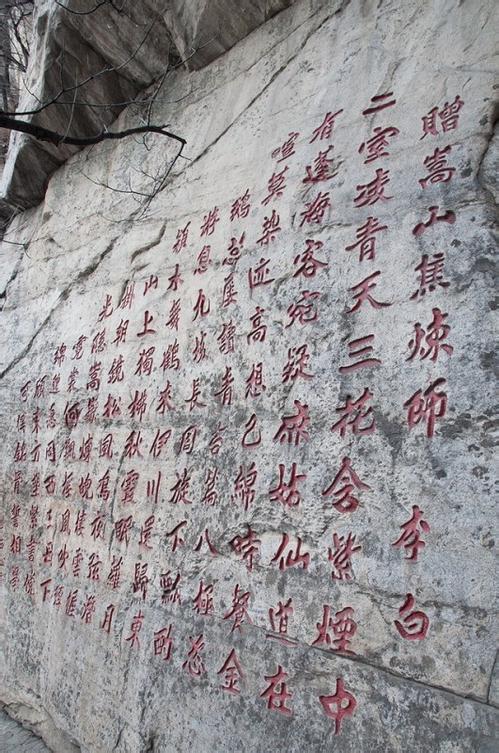 贈嵩山焦煉師 李白
二室凌青天三花含紫煙中
有蓬海客宛疑麻姑仙道在
喧莫染迹高想已綿時餐金
鵝蕊屢讀青苔篇八極恣
息九垓長周旋下瓢酌
潁水舞鶴來伊川還歸東
山上獨拂秋霞眠蘿月
掛朝鏡松風鳴夜弦潛
光隱嵩嶽煉魄棲雲幄
霓裳何飄颻鳳吹轉
綿邈願同西王母下
顧東方朔紫書儻
可傳銘骨誓相學